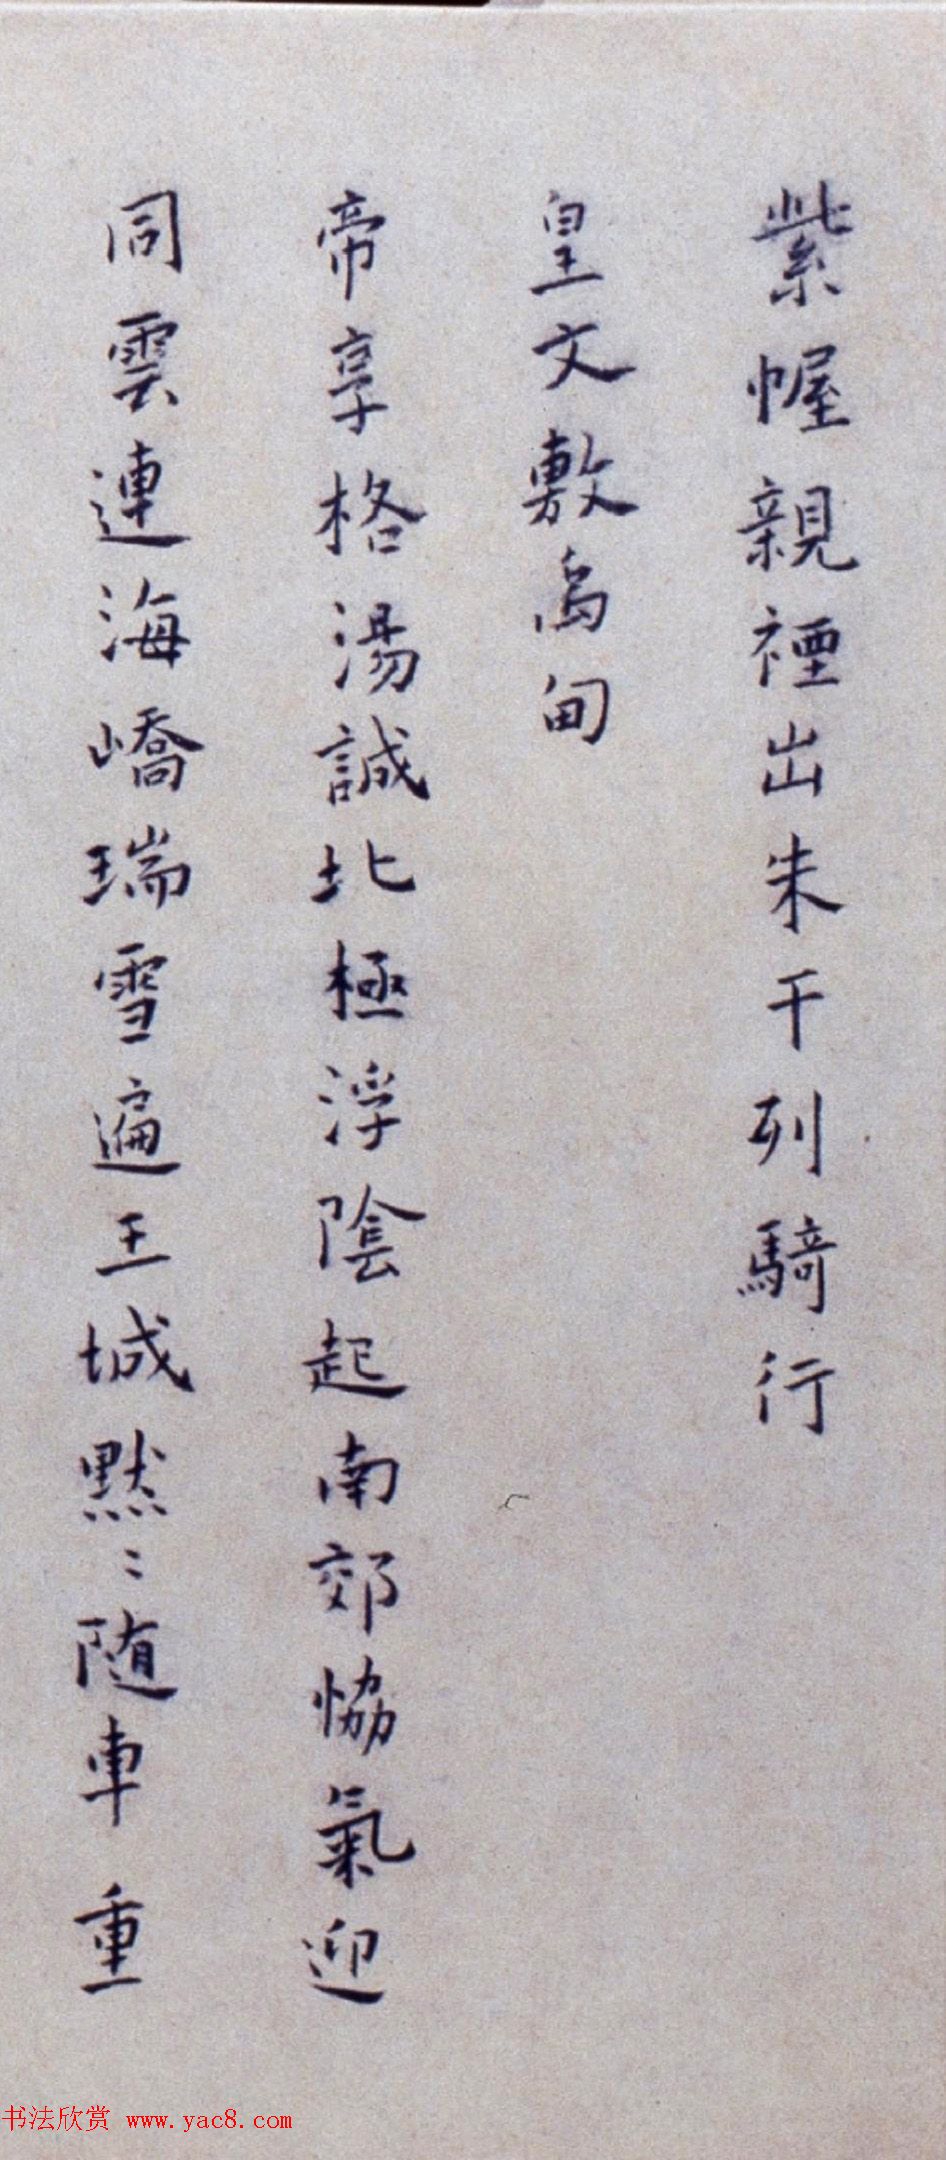 紫幄親禋出朱干列騎行
皇文敷禹甸
帝享格湯誠北極浮陰起南郊恊氣迎
同雲連海嶠瑞雪遍王城黙〻随車重
书法欣赏 www.yac8.com